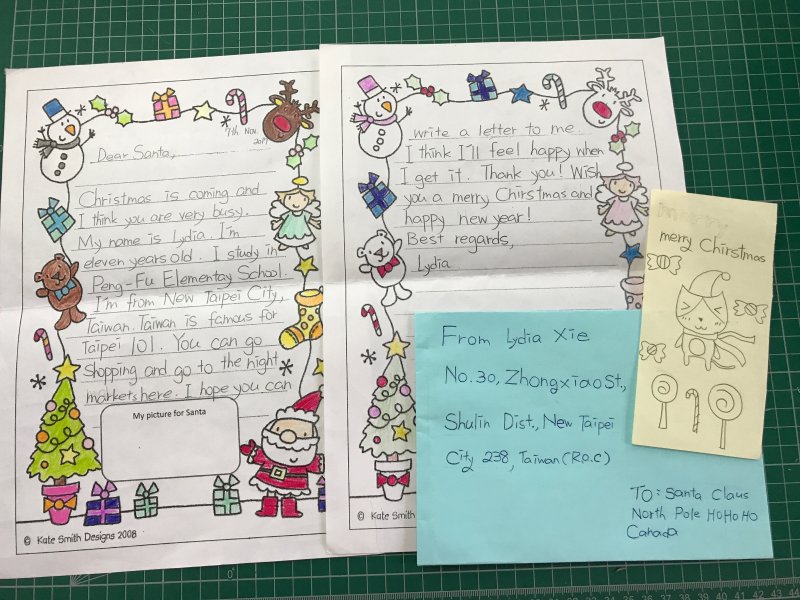 7th. Nov.
2017
Dear Santa,
Christmas is coming and
I think you are very busy.
My name is Lydia. I'm
eleven years old. I study in
Peng-Fu Elementay School.
I'm from New Taipei City,
Taiwan. Taiwan is famous for
Taipei 101. You can go
shopping and go to the night
markets here. I hope you can
My picture for Santa
© Kate Smith Designs 2008
write a letter to me.
I think I'll feel happy when
I get it. Thank you! Wish
you a merry Chirstmas and
happy new year!
Best regards,
Lydia
© Kate Smith
merry Chirstmas
From Lydia Xie
No.30, Zhongxiao St.,
Shulin Dist., New Taipei
City 238, Taiwan (R.O.C)
To: Santa Claus
North Pole HoHoHo
Canada